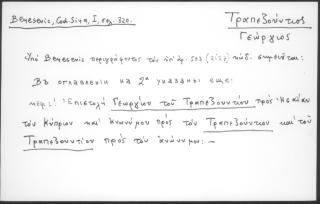 Benešević, Cod. Sina, I, σελ. 320.
Τραπεζούντιος
Γεώργιος
Ὑπὸ Benešević περιγράφοντος τὸν ὑπ' ἀρ. 503 (2157) κώδ. σημειοῦται:
Въ оглавленіи на 2ª указаны еще:
μεφ.: Ἐπιστολὴ Γεωργίου τοῦ Τραπεζουντίου πρὸς Ἡσαΐαν
τὸν Κύπριον καὶ Ἀνωνύμου πρὸς τὸν Τραπεζούντιον καὶ τοῦ
Τραπεζουντίου πρὸς τὸν ἀνώνυμον: —